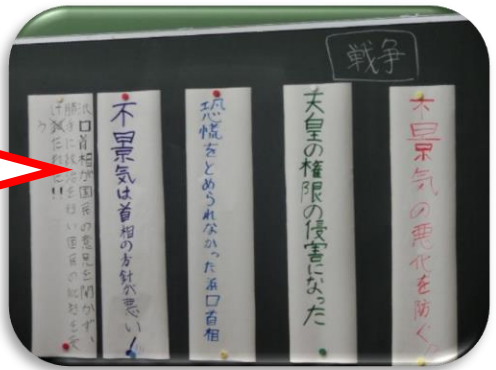 戦争
不景気の悪化を防ぐ
天皇の権限の侵害になった
恐慌をとめられなかった浜口首相
不景気は首相の方針が悪い!
浜口首相が国民の意見を聞かず、
勝手に を行い国民の批判を受
け